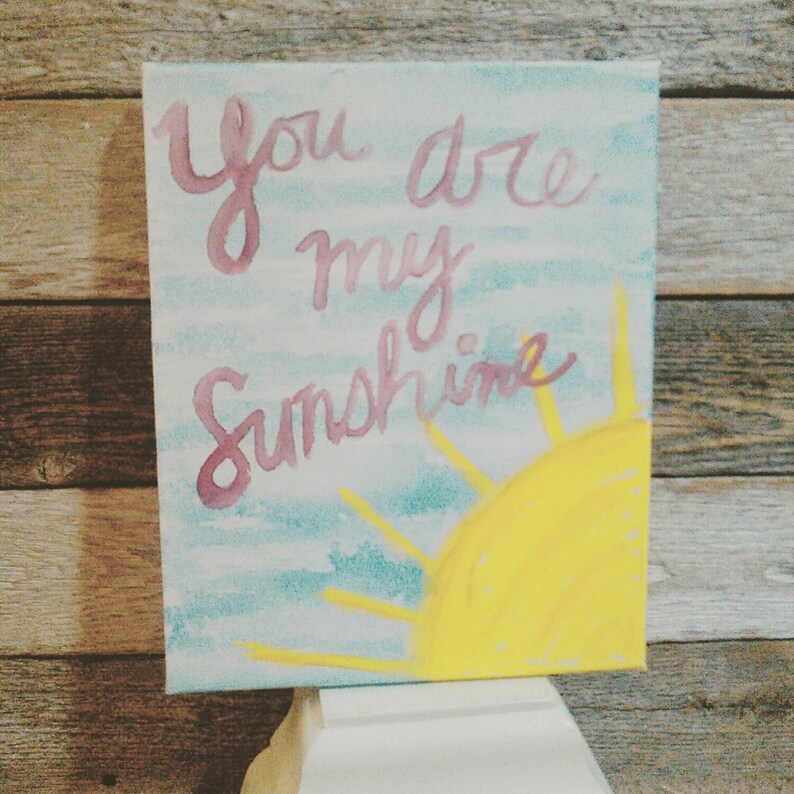 You are
my
Sunshine